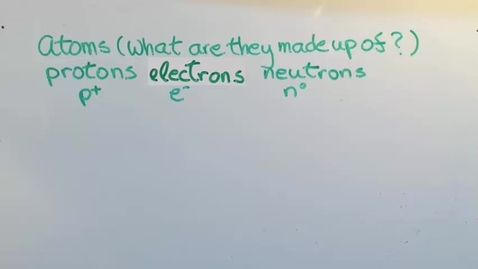 atoms (what are they made up of?)
protons electrons neutrons
p⁺ e⁻ n°